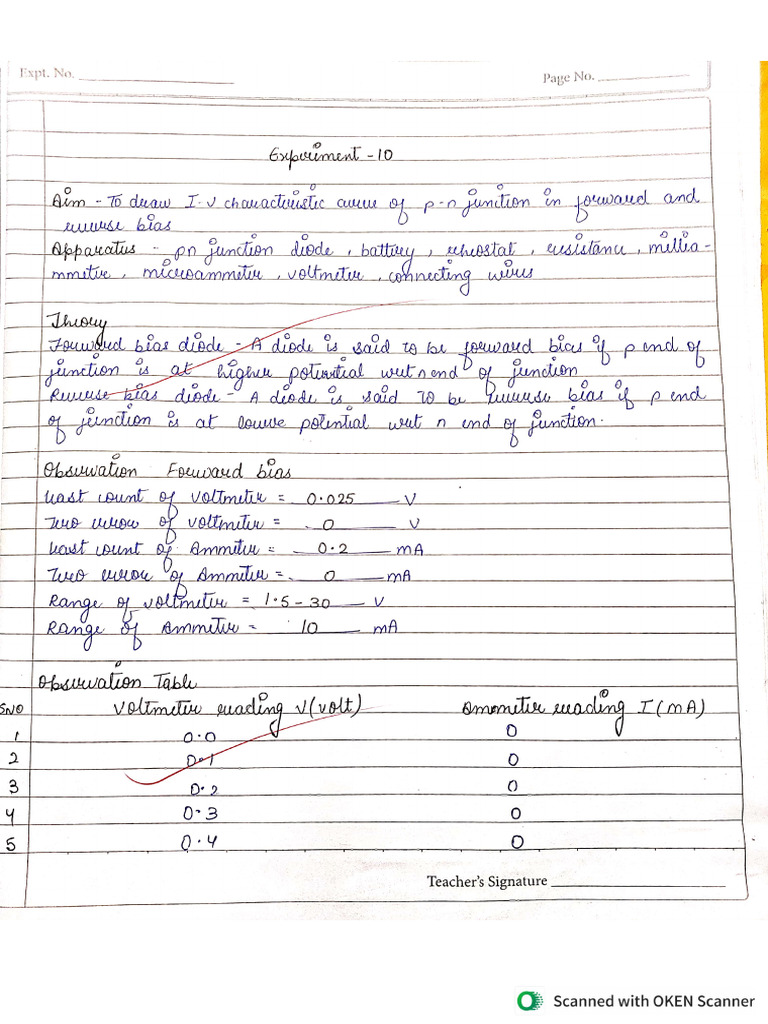 Expt. No.
Page No.
Experiment - 10
Aim - To draw I-V characteristic curve of p-n junction in forward and
reverse bias
Apparatus - pn junction diode, battery, rheostat, resistance, millia-
mmeter, microammeter, voltmeter, connecting wires
Theory
Forward bias diode - A diode is said to be forward bias if p end of
junction is at higher potential wrt n end of junction
Reverse bias diode - A diode is said to be reverse bias if p end
of junction is at lower potential wrt n end of junction.
Observation Forward bias
Least count of voltmeter = 0.025 V
Zero error of voltmeter = 0 V
Least count of Ammeter = 0.2 mA
Zero error of Ammeter = 0 mA
Range of voltmeter = 1.5 - 30 V
Range of Ammeter = 10 mA
Observation Table
SNO Voltmeter reading V(volt) Ammeter reading I (mA)
1 0.0 0
2 0.1 0
3 0.2 0
4 0.3 0
5 0.4 0
Teacher's Signature
Scanned with OKEN Scanner